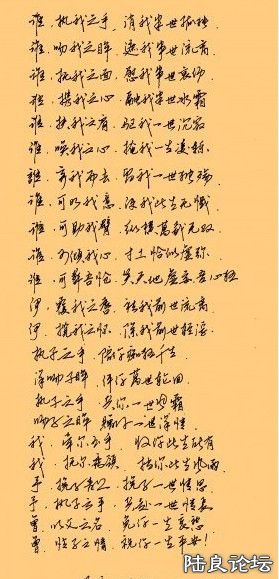 谁，执我之手，消我半世孤独
谁，吻我之眸，遮我半世流离
谁，抚我之面，慰我半世哀伤
谁，携我之心，融我半世冰霜
谁，扶我之肩，驱我一世沉寂
谁，唤我之心，掩我一生凌轹
谁，弃我而去，留我一世独殇
谁，可明我意，使我此生无憾
谁，可助我臂，纵横万载无双
谁，可倾我心，寸土恰似虚弥
谁，可葬吾怆，笑天地虚妄吾心狂
伊，覆我之唇，祛我前世流离
伊，揽我之怀，除我前世轻浮
执子之手，陪你痴狂千生
深吻子眸，伴你万世轮回
执子之手，共你一世风霜
吻子之眸，赠你一世深情
我，牵尔玉手，收你此生所有
我，抚尔秀颈，挡你此生风雨
予，挽子青丝，挽子一世情思
予，执子之手，共赴一世情长
曾，以父之名，免你一生哀愁
曾，怜子之情，祝你一生平安！
陆良论坛